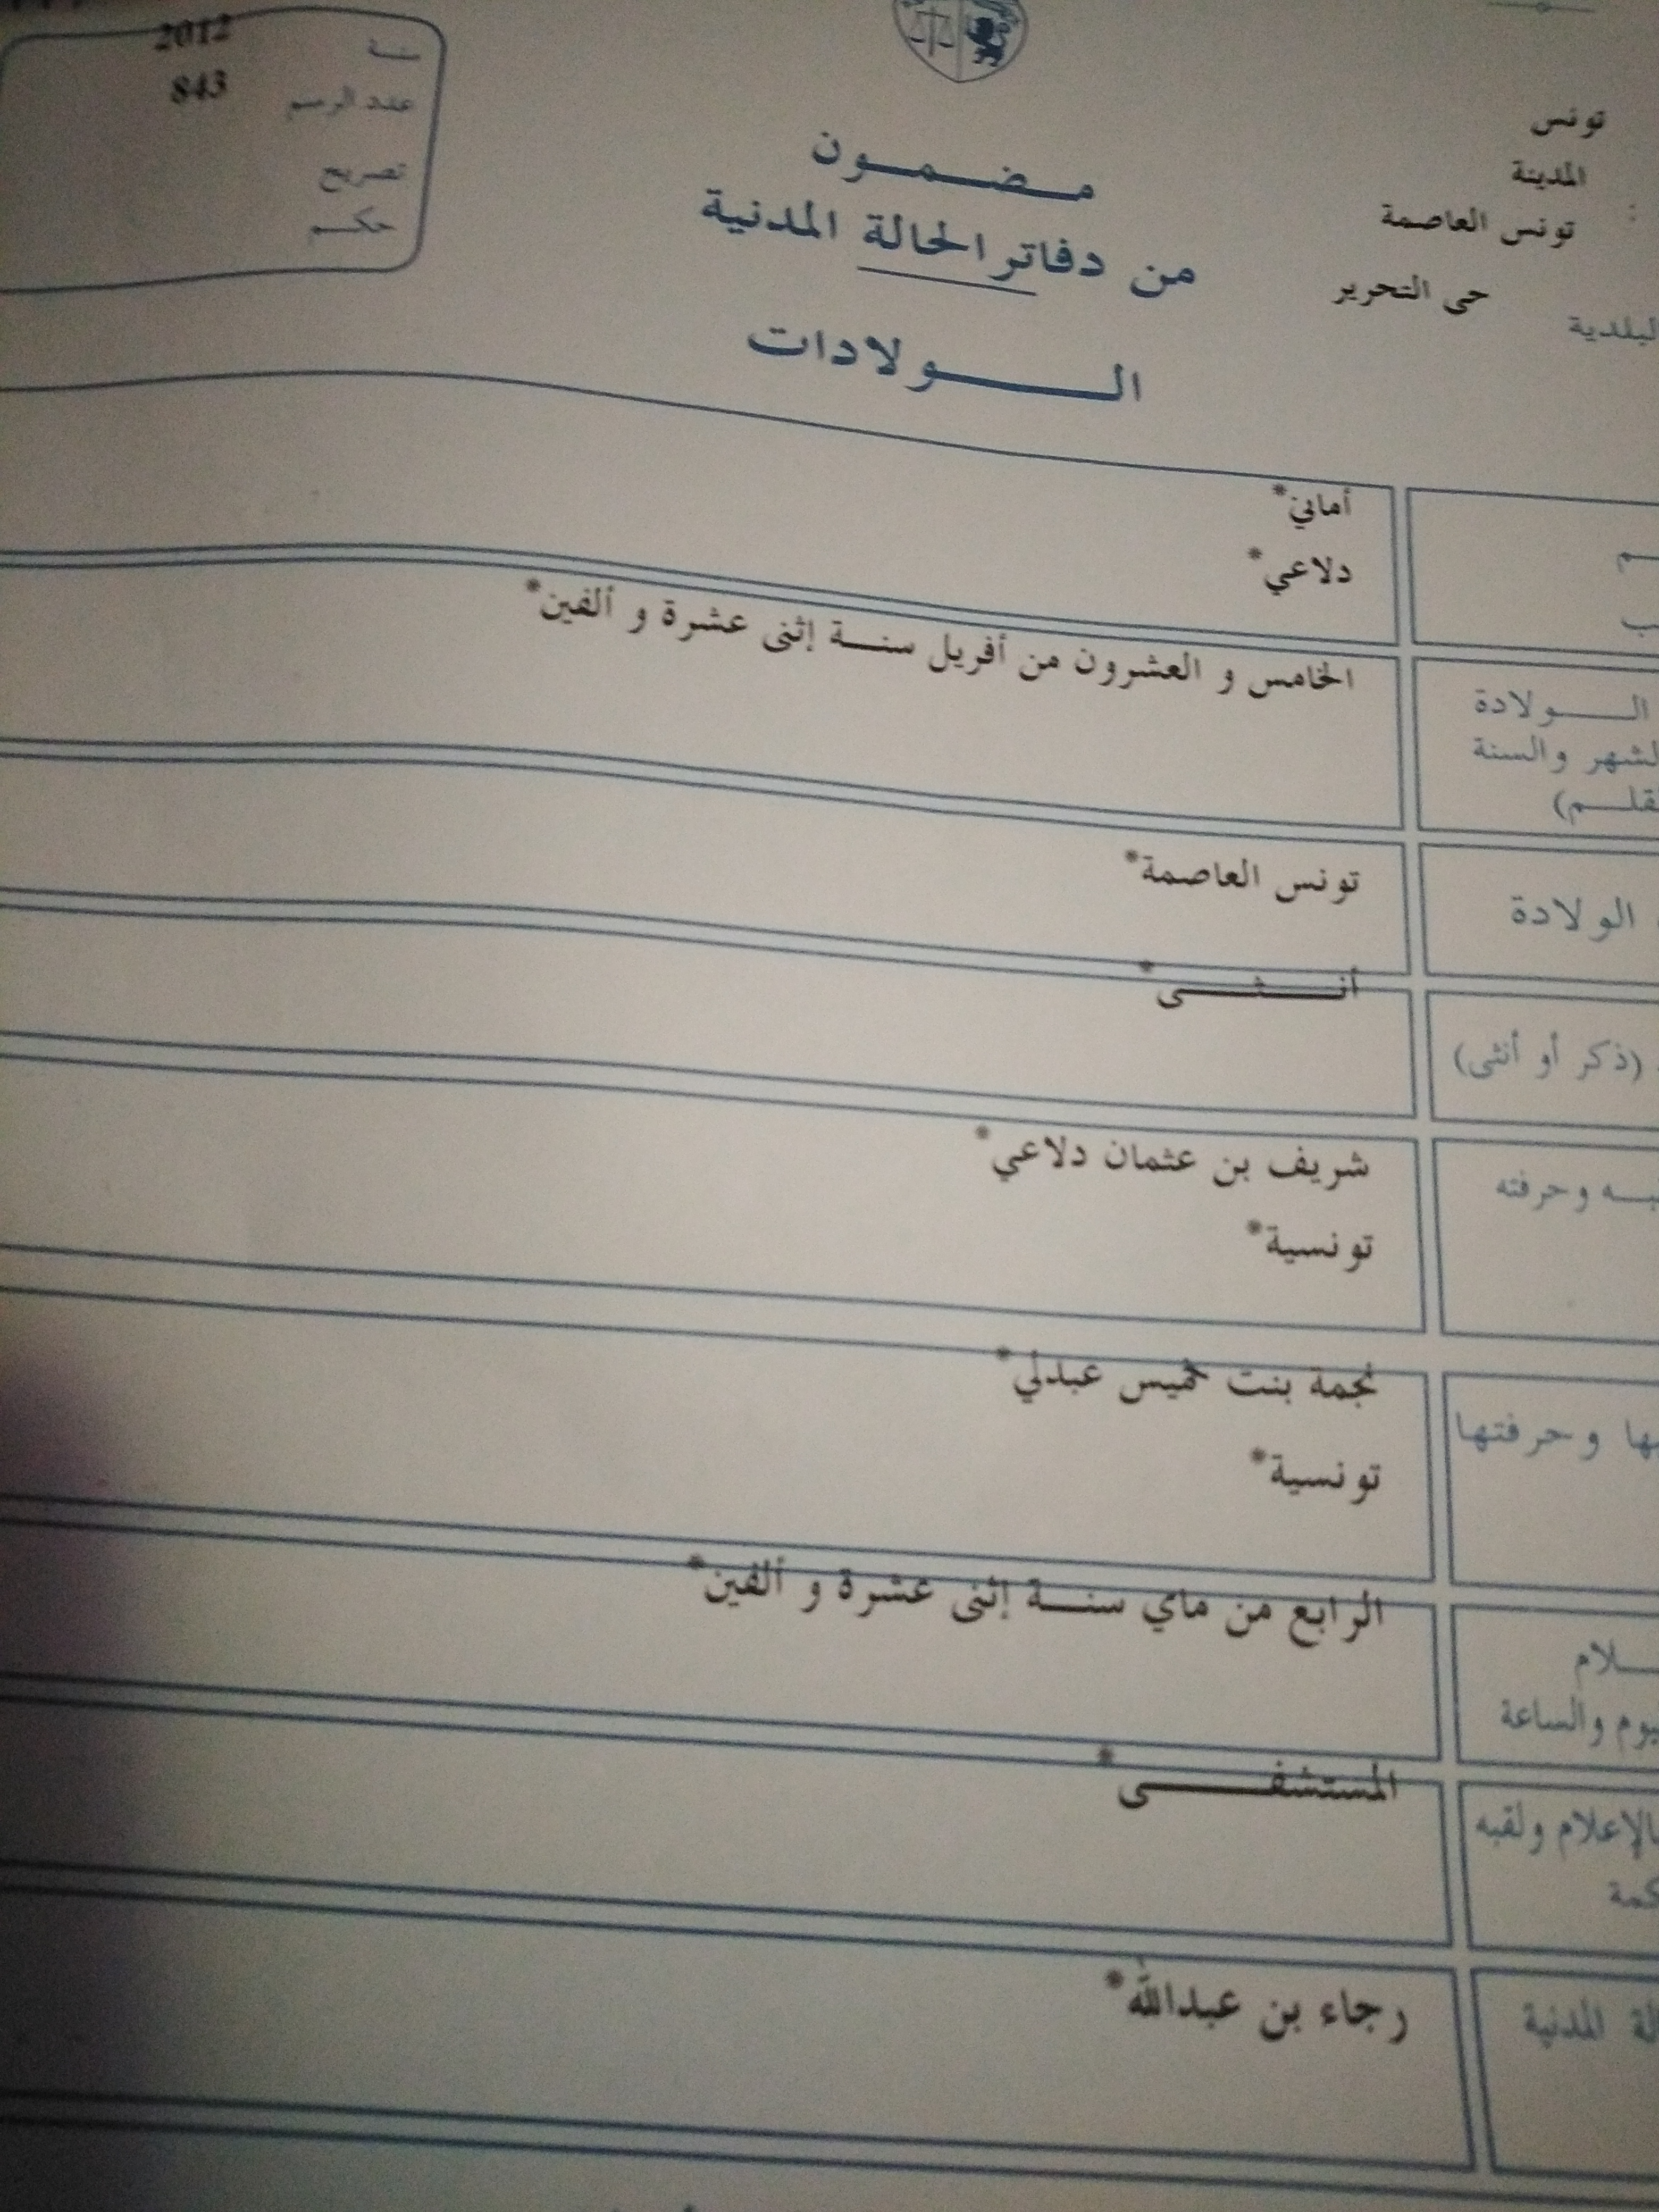 تونس
المدينة
تونس العاصمة
حي التحرير
البلدية
سنة 2012
عدد الرسم 843
تصريح
حكم
مضمون
من دفاتر الحالة المدنية
الولادات
أماني*
دلاعي*
الولادة
الخامس و العشرون من أفريل سنة إثنى عشرة و ألفين*
الشهر والسنة
الولادة
تونس العاصمة*
(ذكر أو أنثى)
أنثى*
وحرفته
شريف بن عثمان دلاعي*
تونسية*
وحرفتها
نجمة بنت خميس عبدلي*
تونسية*
الرابع من ماي سنة إثنى عشرة و ألفين*
والساعة
المستشفى*
بالإعلام ولقبه
المدنية
رجاء بن عبدالله*